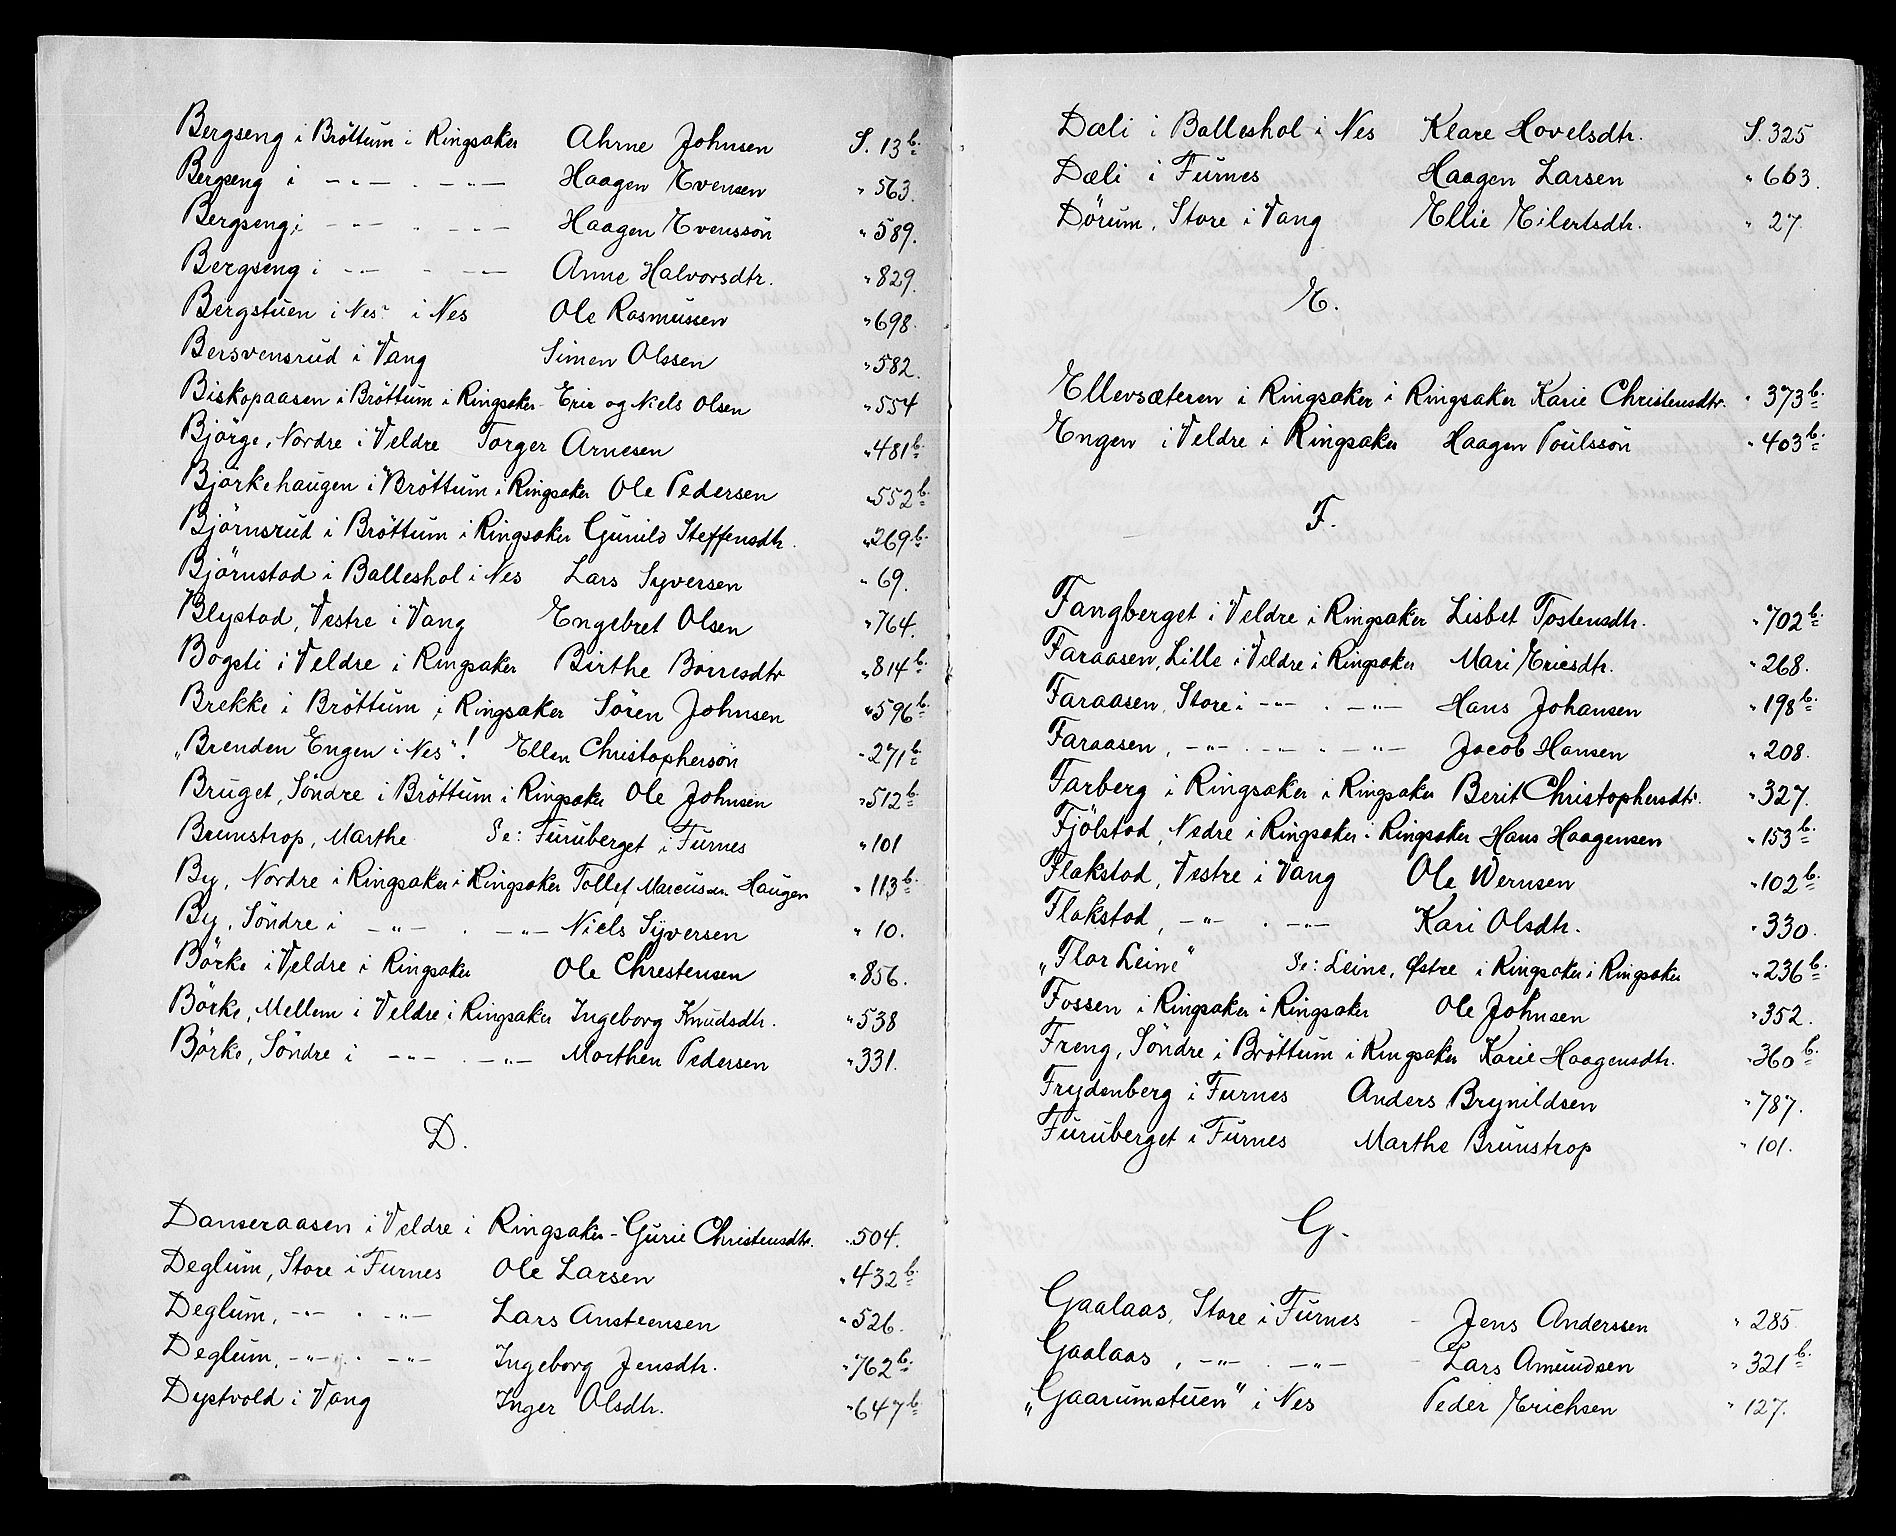 Bergseng i Bröttum i Ringsaker Ahrne Johnsen S. 13 b.
Bergseng i -"- . -"- Haagen Evensen " 563.
Bergseng i -"- . -"- Haagen Evenssön " 589.
Bergseng i -"- . -"- Anne Halvorsdtr. " 829.
Bergstuen i Nes i Nes Ole Rasmussen " 698.
Bersvensrud i Vang Simen Olssen " 582.
Biskopaasen i Bröttum i Ringsaker - Eric og Niels Olsen " 554
Bjørge, Nordre i Veldre Torger Arnesen " 481 b.
Björkehaugen i Bröttum i Ringsaker Ole Pedersen " 552 b.
Björnsrud i Bröttum i Ringsaker Gunild Steffensdtr. " 269 b.
Björnstad i Balleshol i Nes Lars Syversen " 69.
Blystad, Vestre i Vang Engebret Olsen " 764.
Bogsti i Veldre i Ringsaker Birthe Borresdtr " 814 b.
Brekke i Bröttum i Ringsaker Sören Johnsen " 596 b.
"Brenden Engen i Nes"! Ellen Christophersön " 271 b.
Bruget, Söndre i Bröttum i Ringsaker Ole Johnsen " 512 b.
Brunstrop, Marthe Se: Furuberget i Furnes " 101
By, Nordre i Ringsaker i Ringsaker Tollef Marcussen Haugen " 113 b.
By, Söndre i -"- . -"- Niels Syversen " 10.
Börke i Veldre i Ringsaker Ole Chrestensen " 856.
Börke, Mellem i Veldre i Ringsaker Ingeborg Knudsdtr. " 538
Börke, Söndre i -"- . -"- Morthen Pedersen " 331.
D.
Danseraasen i Veldre i Ringsaker - Gurie Christensdtr. " 504.
Deglum, Store i Furnes Ole Larsen " 432 b.
Deglum, -"- . -"- Lars Ansteensen " 526.
Deglum, -"- . -"- Ingeborg Jensdtr. " 762 b.
Dystvold i Vang Inger Olsdtr. " 647 b.
Dæli i Balleshol i Nes Klare Hovelsdtr. S. 325
Dæli i Furnes Haagen Larsen " 663.
Dörum, Store i Vang Ellie Eilertsdtr. " 27.
E.
Ellevsæteren i Ringsaker i Ringsaker Karie Christensdtr. " 373 b.
Engen i Veldre i Ringsaker Haagen Poulssön " 403 b.
F.
Fangberget i Veldre i Ringsaker Lisbet Tostensdtr. " 702 b.
Faraasen, Lille i Veldre i Ringsaker Mari Ericsdtr. " 268.
Faraasen, Store i -"- . -"- Hans Johansen " 198 b.
Faraasen, -"- . -"- . -"- Jacob Hansen " 208.
Farberg i Ringsaker i Ringsaker Berit Christophersdtr. " 327.
Fjölstad, Nedre i Ringsaker i Ringsaker Hans Haagensen " 153 b.
Flakstad, Vestre i Vang Ole Wernsen " 102 b.
Flakstad, -"- . -"- Kari Olsdtr. " 330.
"Flor Leine" Se: Leine, Østre i Ringsaker i Ringsaker " 236 b.
Fossen i Ringsaker i Ringsaker Ole Johnsen " 352.
Freng, Söndre i Bröttum i Ringsaker Karie Haagensdtr. " 360 b.
Frydenberg i Furnes Anders Brynildsen " 787.
Furuberget i Furnes Marthe Brunstrop " 101.
G.
Gaalaas, Store i Furnes - Jens Anderssen " 285.
Gaalaas, -"- . -"- - Lars Amundsen " 321 b.
"Gaarumstuen" i Nes Peder Erichsen " 127.